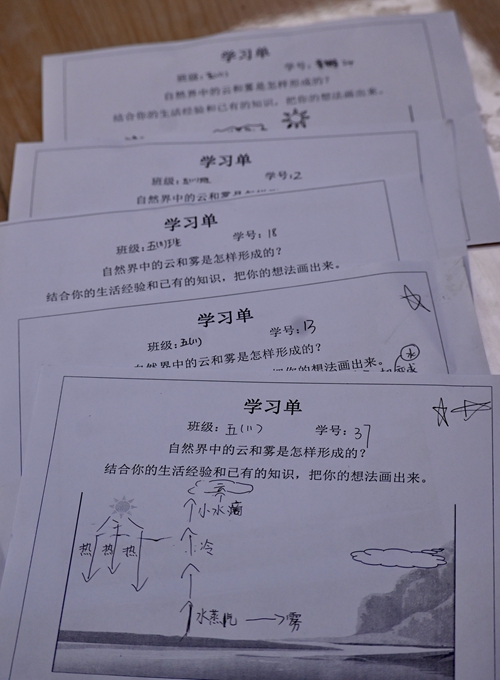 学习单
班级:五(1) 学号:
自然界中的云和雾是怎样形成的?
结合你的生活经验和已有的知识,把你的想法画出来。
学习单
班级: 学号:2
自然界中的云和雾是怎样形成的
学习单
班级:五(1)班 学号:18
自然界中的云和雾是怎样形成的?
结合你的生活经验和已有的知识,把你的想法画出来。
学习单
班级:五(1) 学号:13
自然界中的云和雾是怎样形成的?
把你的想法画出来。
水
学习单
班级:五(1) 学号:37
自然界中的云和雾是怎样形成的?
结合你的生活经验和已有的知识,把你的想法画出来。
云
小水滴
热 热 热 冷
水蒸气 雾